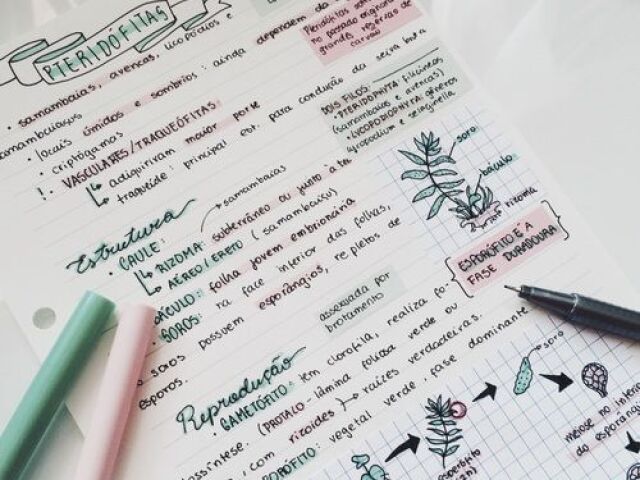 PTERIDÓFITAS
• samambaias, avencas, licopódios e
samambaiaçus
• locais úmidos e sombrios: ainda dependem da
• criptógamas
!. VASCULARES/TRAQUEÓFITAS:
↳ adquiriram maior porte
↳ traqueíde: principal est. para condução da seiva bruta
Pteridófitas
no passado originaram
grandes reservas de
carvão
DOIS FILOS:
• PTERIDOPHYTA: filicíneas
(samambaias e avencas)
• LYCOPODIOPHYTA: gêneros
lycopodium e selaginella
Estrutura
• CAULE:
→ samambaias
↳ RIZOMA: subterrâneo ou junto à te
↳ AÉREO/ERETO (samambaiaçu)
BÁCULO: folha jovem embrionária
• SOROS: na face inferior das folhas,
soros possuem esporângios, repletos de
esporos.
soro
báculo
rizoma
ESPORÓFITO É A
FASE DURADOURA
assexuada por
brotamento
Reprodução
• GAMETÓFITO: tem clorofila, realiza fo-
tossíntese. (PROTALO - lâmina foliosa verde ou
, com rizoides) → raízes verdadeiras.
ESPORÓFITO: vegetal verde, fase dominante
soro
meiose no interi
do esporân
esporófito
(2n)